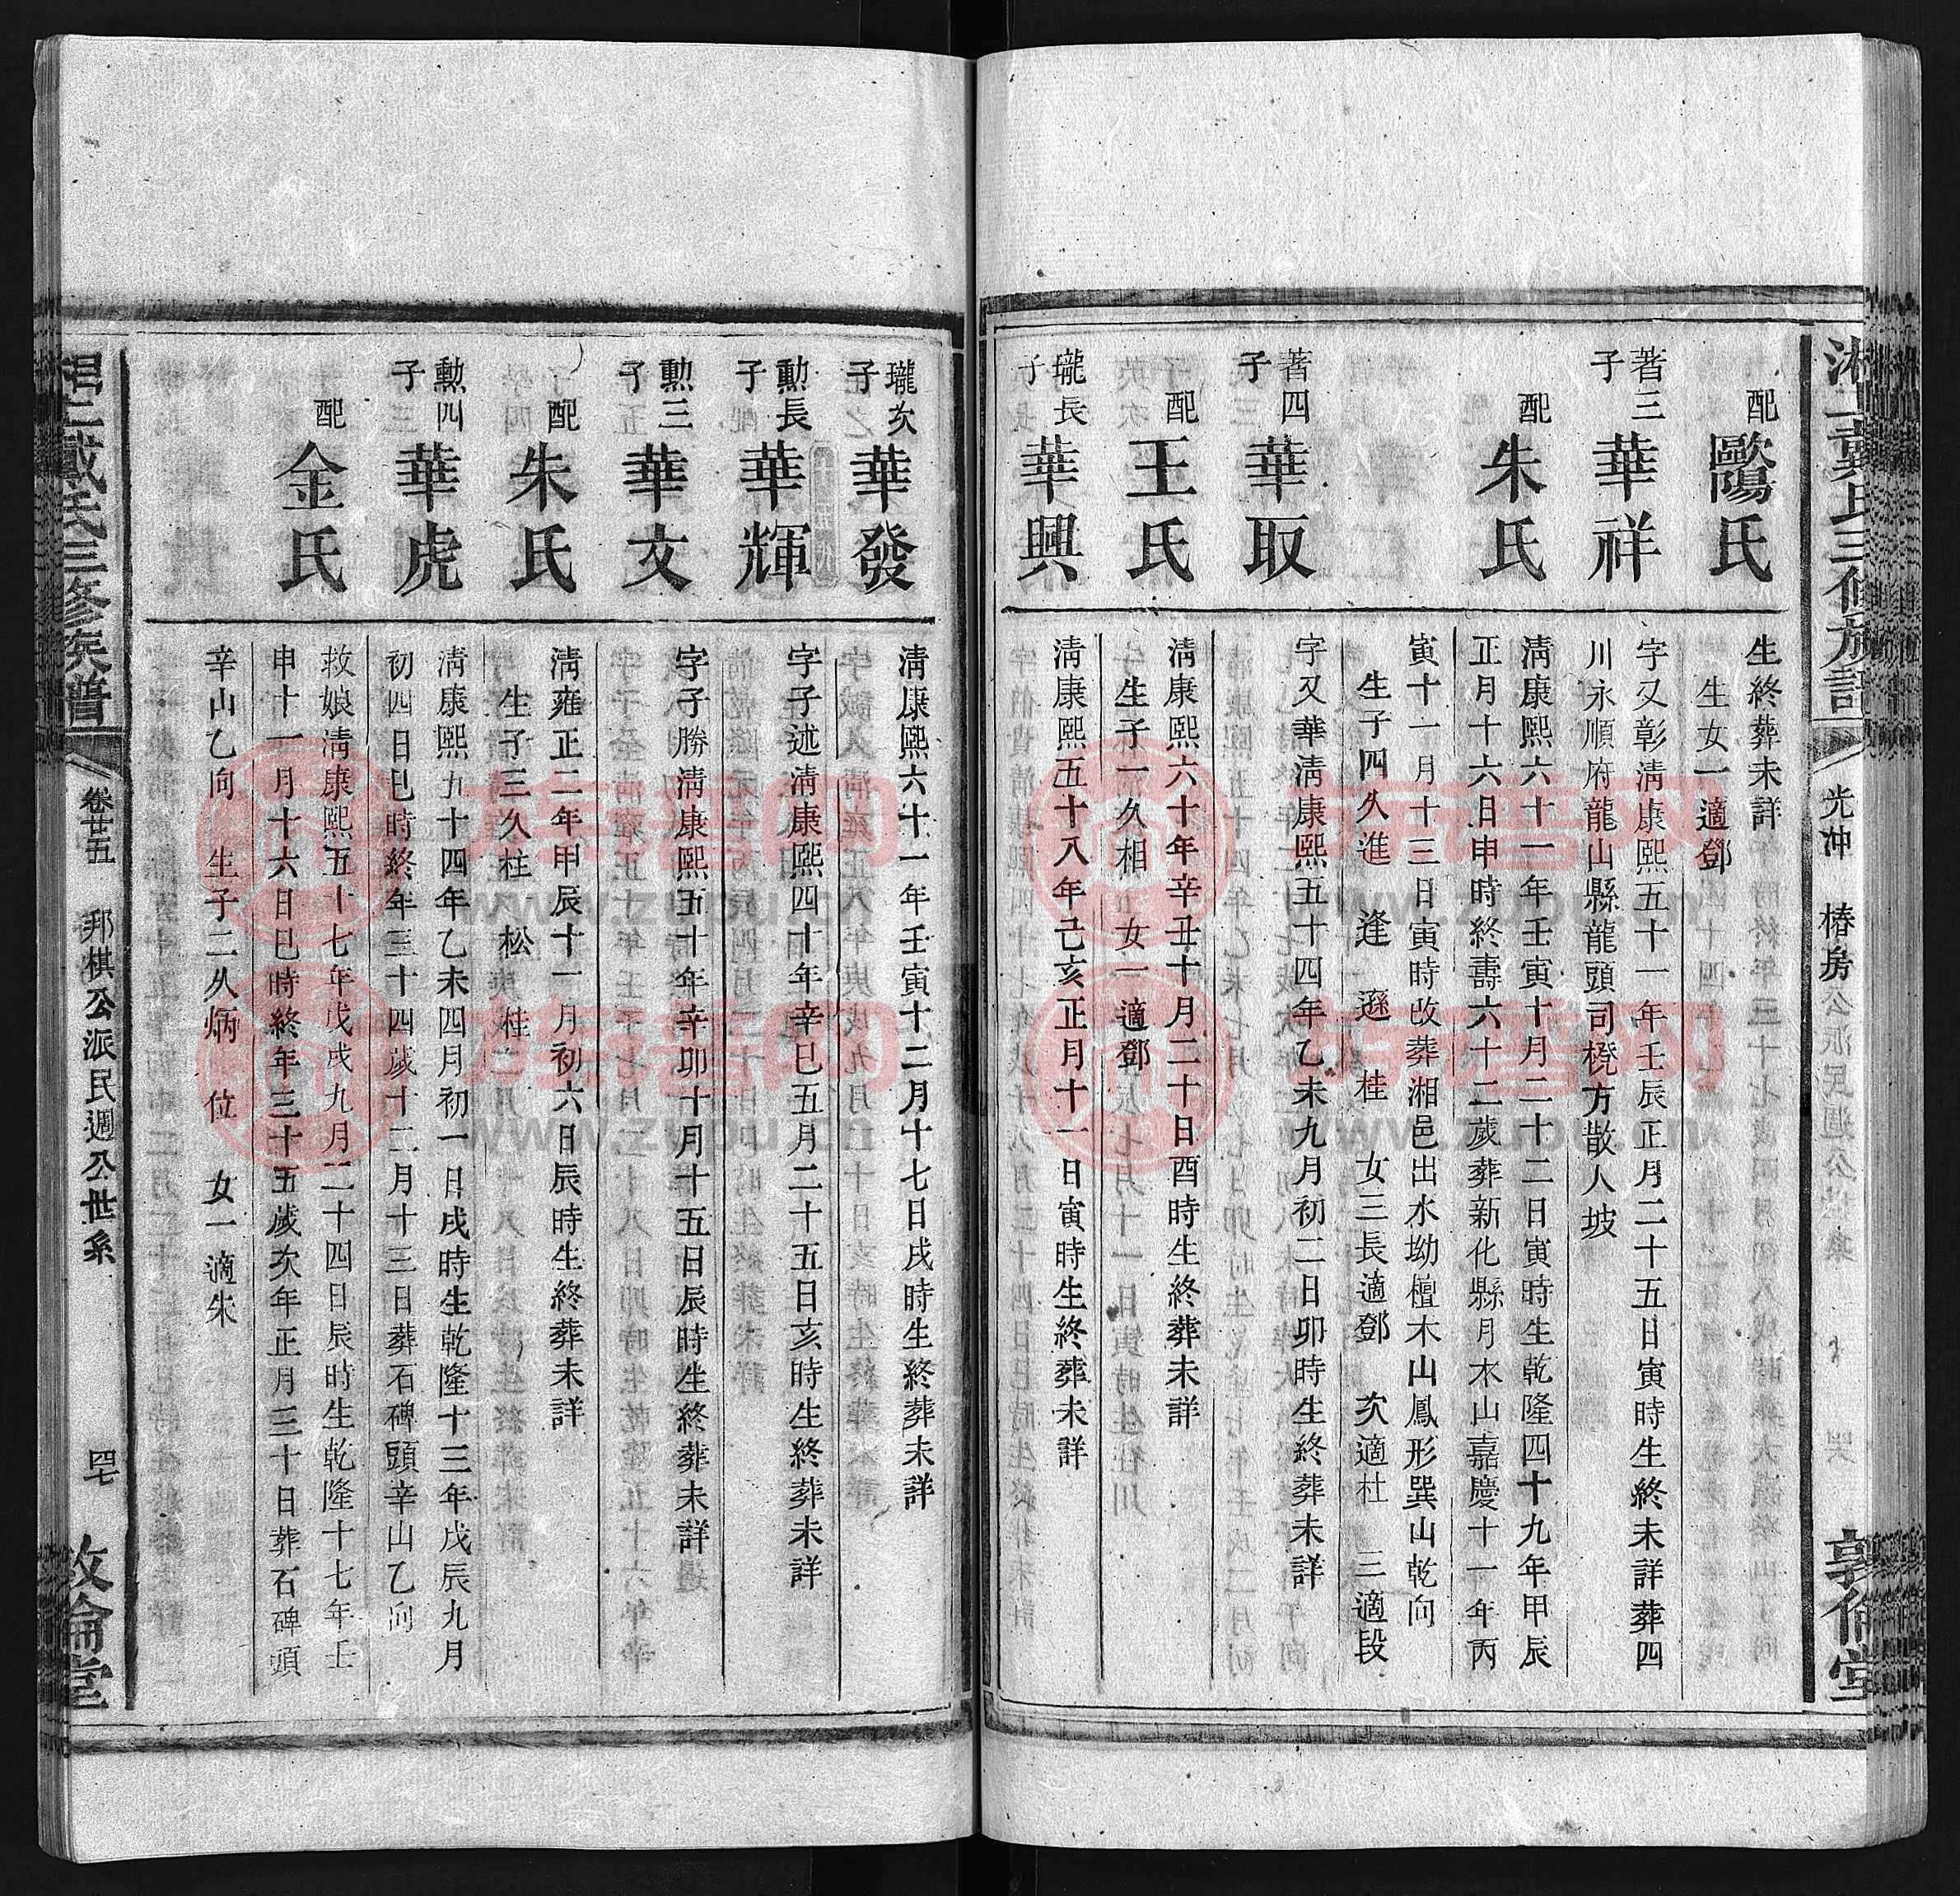 湘上戴氏三修族譜
光冲
椿房
敦倫堂
配
歐陽氏
生終葬未詳
生女一適鄧
著三子
華祥
字又彰清康熙五十一年壬辰正月二十五日寅時生終未詳葬四
川永順府龍山縣龍頭司橙方散人坡
配
朱氏
清康熙六十一年壬寅十月二十二日寅時生乾隆四十九年甲辰
正月十六日申時終壽六十二歲葬新化縣月木山嘉慶十一年丙
寅十一月十三日寅時改葬湘邑出水坳檀木山鳳形巽山乾向
生子四久進 逢 遜 桂 女三長適鄧 次適杜 三適段
著四子
華取
字又華清康熙五十四年乙未九月初二日卯時生終葬未詳
配
王氏
清康熙六十年辛丑十月二十日酉時生終葬未詳
生子一久相 女一適鄧
瓏長子
華興
清康熙五十八年己亥正月十一日寅時生終葬未詳
瓏次子
華發
清康熙六十一年壬寅十二月十七日戌時生終葬未詳
勲長子
華輝
字子述清康熙四十年辛巳五月二十五日亥時生終葬未詳
勲三子
華文
字子勝清康熙五十年辛卯十月十五日辰時生終葬未詳
配
朱氏
清雍正二年甲辰十一月初六日辰時生終葬未詳
生子三久柱 松 桂
勲四子
華虎
清康熙五十四年乙未四月初一日戌時生乾隆十三年戊辰九月
初四日巳時終年三十四歲十二月十三日葬石碑頭辛山乙向
配
金氏
救娘清康熙五十七年戊戌九月二十四日辰時生乾隆十七年壬
申十一月十六日巳時終年三十五歲次年正月三十日葬石碑頭
辛山乙向 生子二从炳 位 女一適朱
湘上戴氏三修族譜
卷廿五
邦棋公派民週公世系
四七
敦倫堂
族譜网
www.zupu.cn
族譜网
www.zupu.cn
族譜网
www.zupu.cn
族譜网
www.zupu.cn